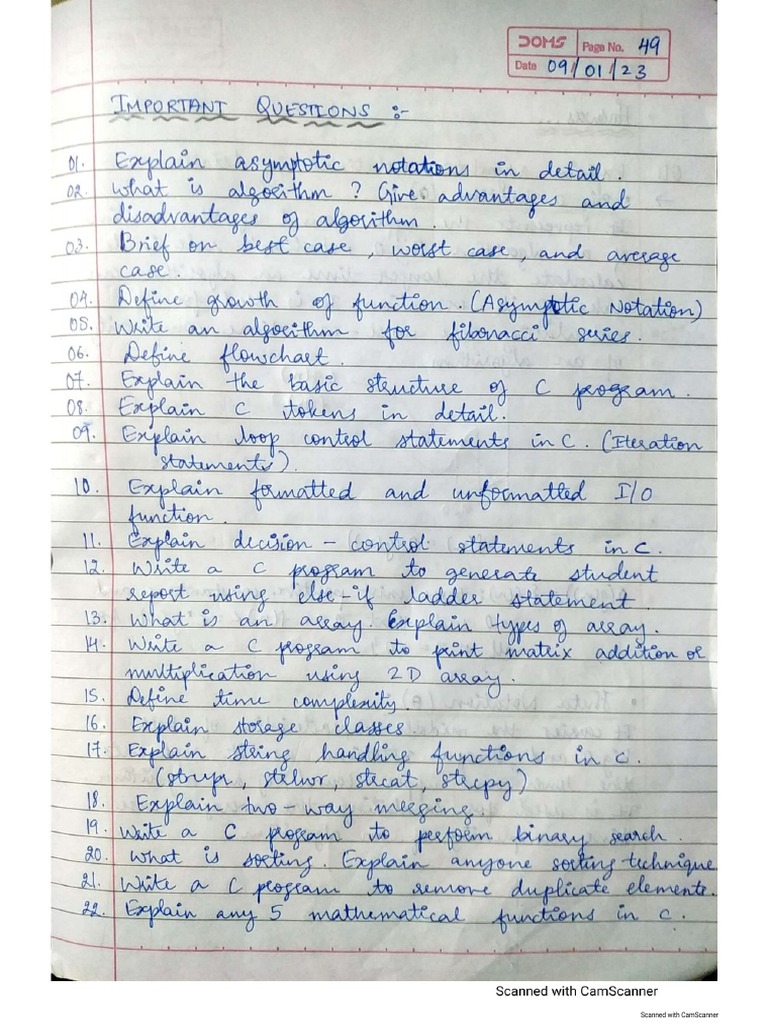 DOMS Page No. 49
Date 09/01/23
IMPORTANT QUESTIONS :-
01. Explain asymptotic notations in detail.
02. What is algorithm? Give advantages and
disadvantages of algorithm.
03. Brief on best case, worst case, and average
case.
04. Define growth of function. (Asymptotic Notation)
05. Write an algorithm for fibonacci series.
06. Define flowchart.
07. Explain the basic structure of C program.
08. Explain C tokens in detail.
09. Explain loop control statements in C. (Iteration
statements).
10. Explain formatted and unformatted I/O
function.
11. Explain decision-control statements in C.
12. Write a C program to generate student
report using else-if ladder statement.
13. What is an array. Explain types of array.
14. Write a C program to print matrix addition or
multiplication using 2D array.
15. Define time complexity.
16. Explain storage classes
17. Explain string handling functions in C.
(strupr, strlwr, strcat, strcpy)
18. Explain two-way merging.
19. Write a C program to perform binary search.
20. What is sorting. Explain anyone sorting technique
21. Write a C program to remove duplicate elements.
22. Explain any 5 mathematical functions in C.
Scanned with CamScanner
Scanned with CamScanner